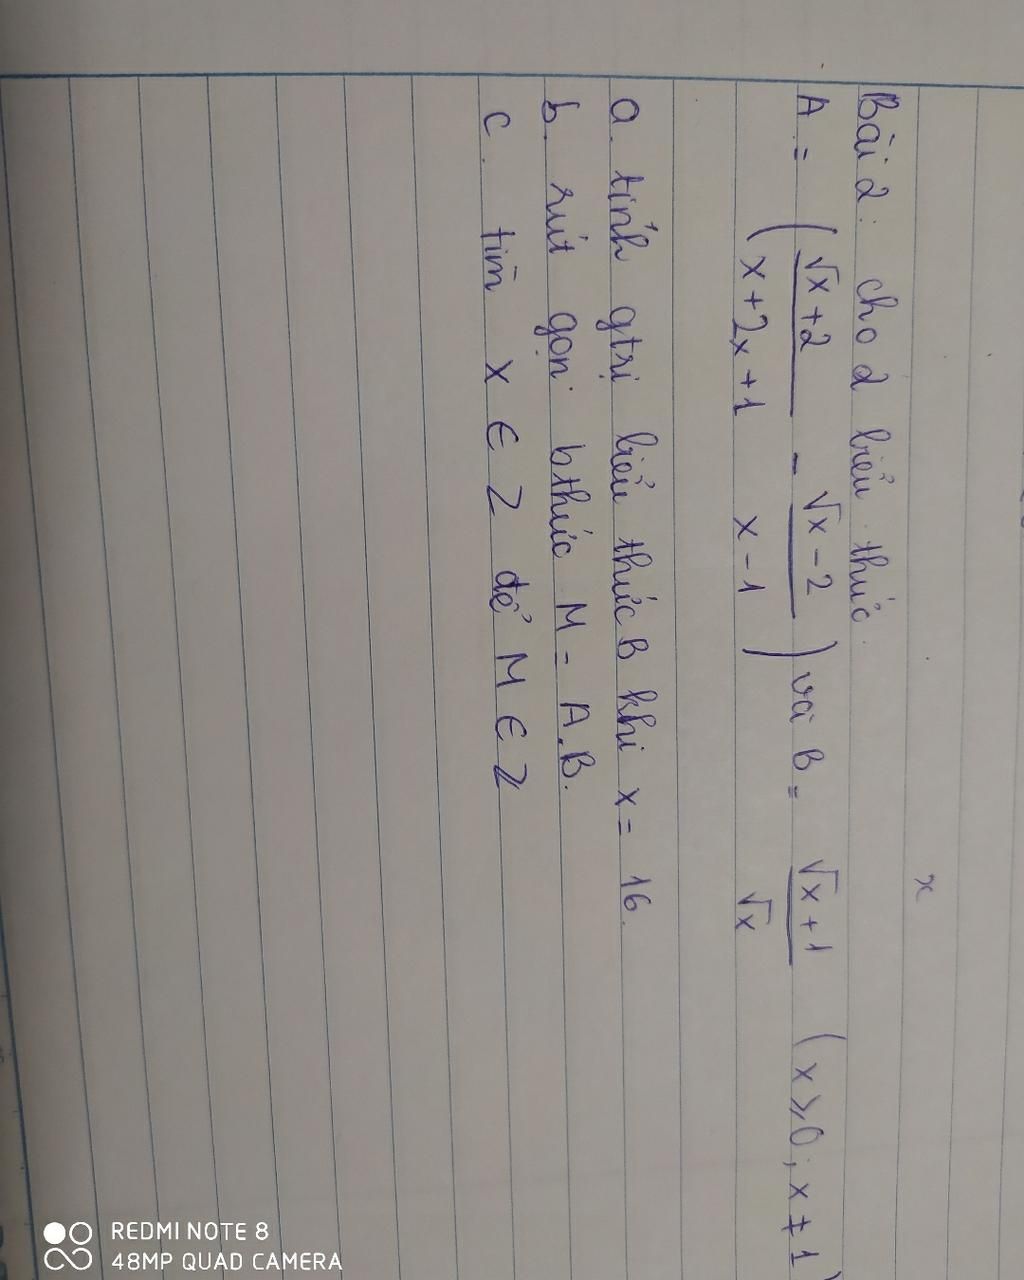 x
Bài 2: cho 2 biểu thức.
A = (√x + 2 / x + 2x + 1 - √x - 2 / x - 1) và B = √x + 1 / √x (x ⩾ 0; x ≠ 1)
a. tính gtrị biểu thức B khi x = 16.
b. rút gọn bthức M = A.B.
c. tìm x ∈ Z để M ∈ Z
REDMI NOTE 8
48MP QUAD CAMERA